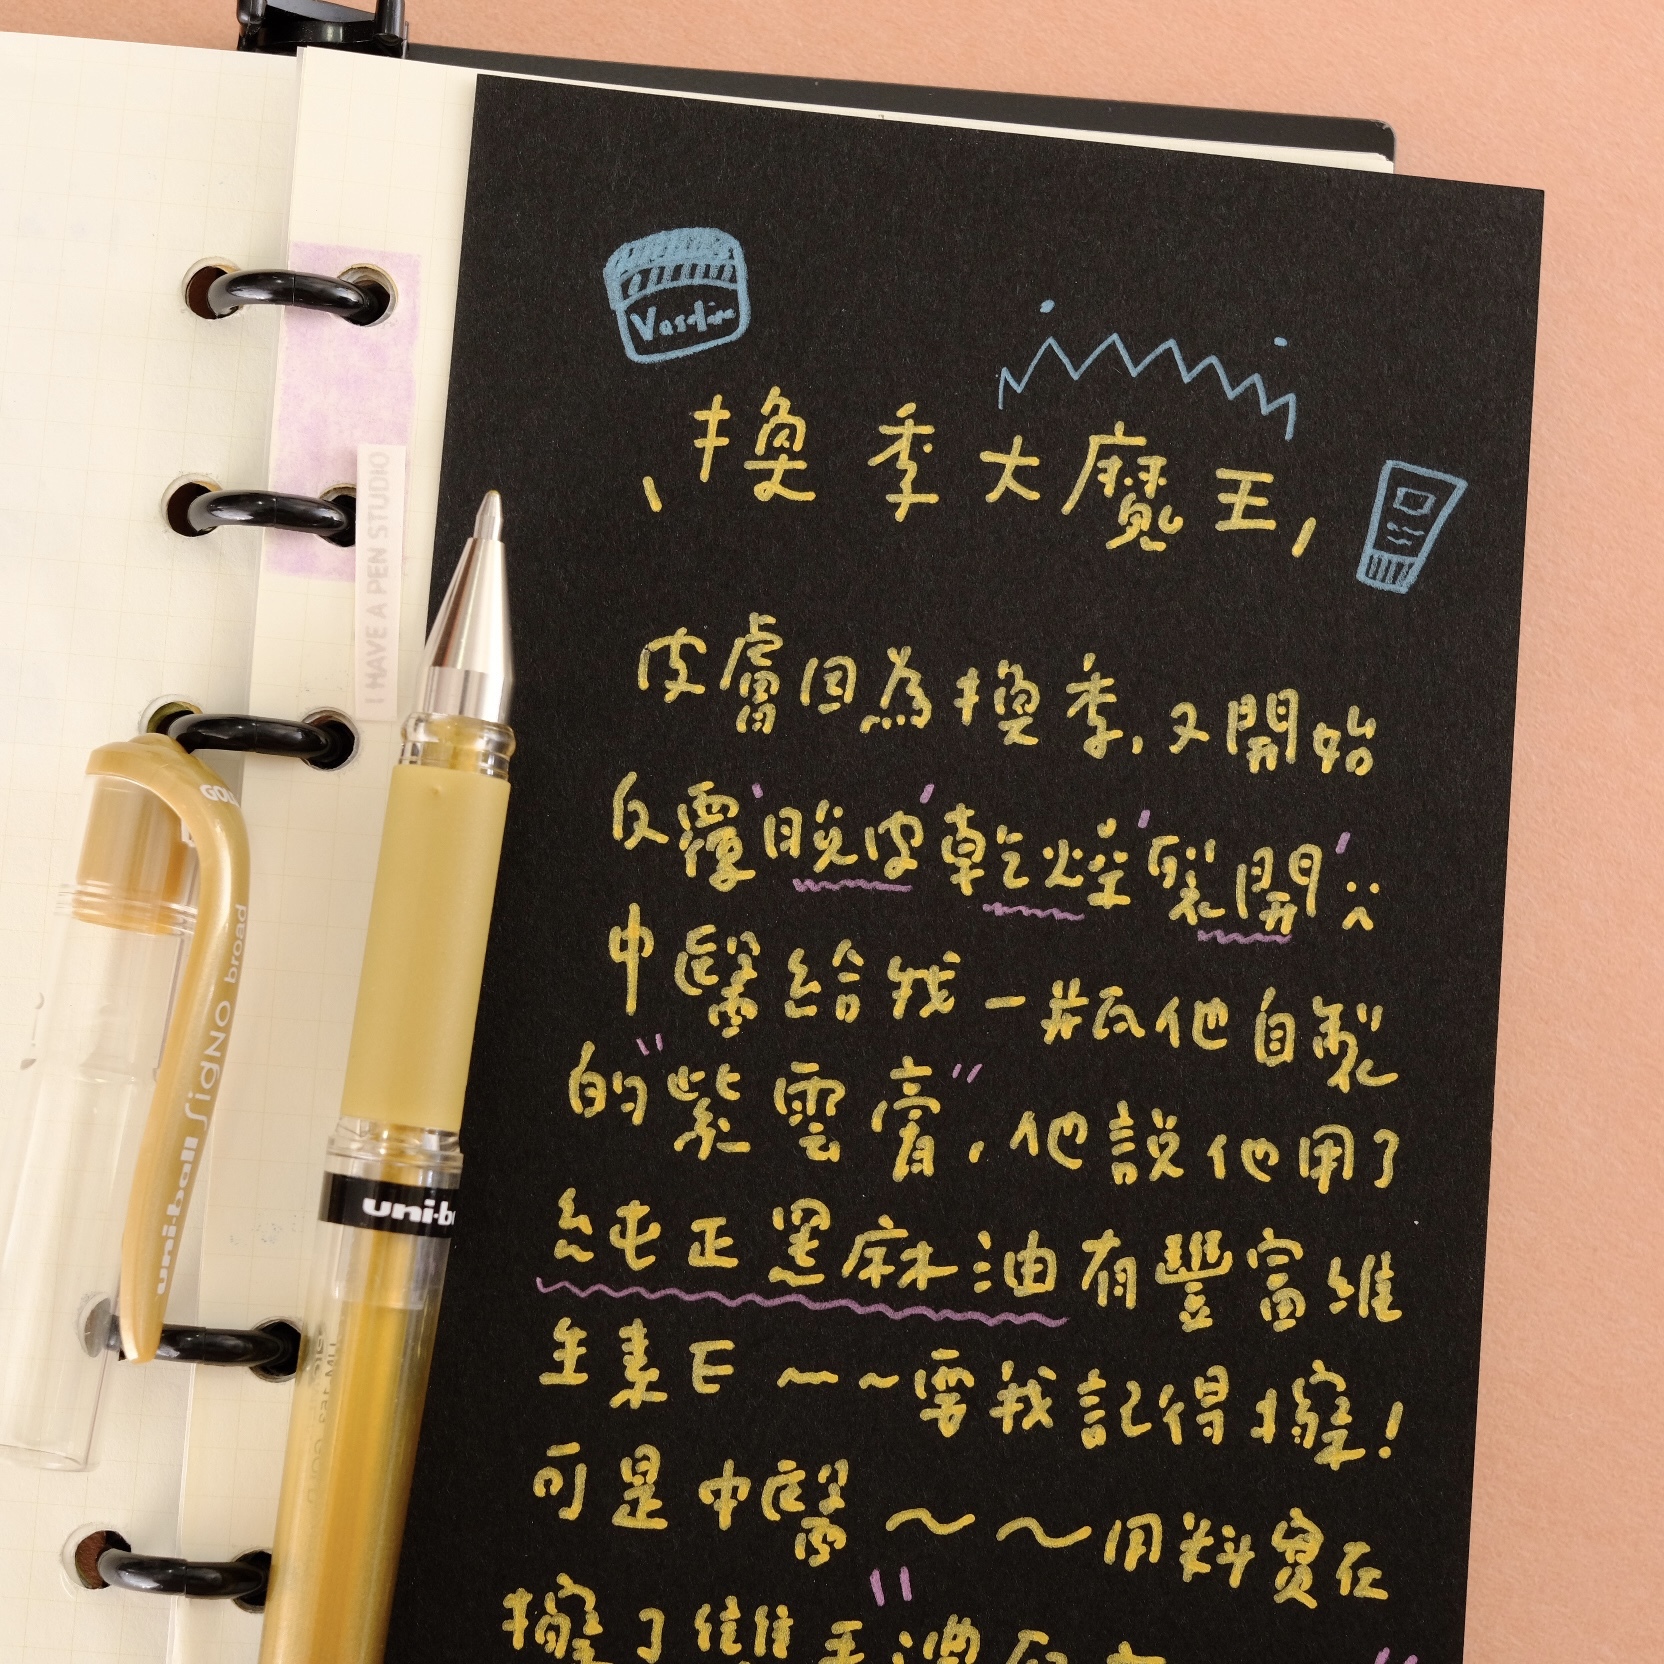 Vaseline
換季大魔王
皮膚因為換季,又開始
反覆'脫皮'乾燥'裂開':(
中醫給我一瓶他自製
的"紫雲膏",他說他用了
純正黑麻油有豐富維
生素E~~要我記得擦!
可是中醫~~用料實在
擦了雙手
I HAVE A PEN STUDIO
GOLD
uni-ball SigNO broad
uni-b